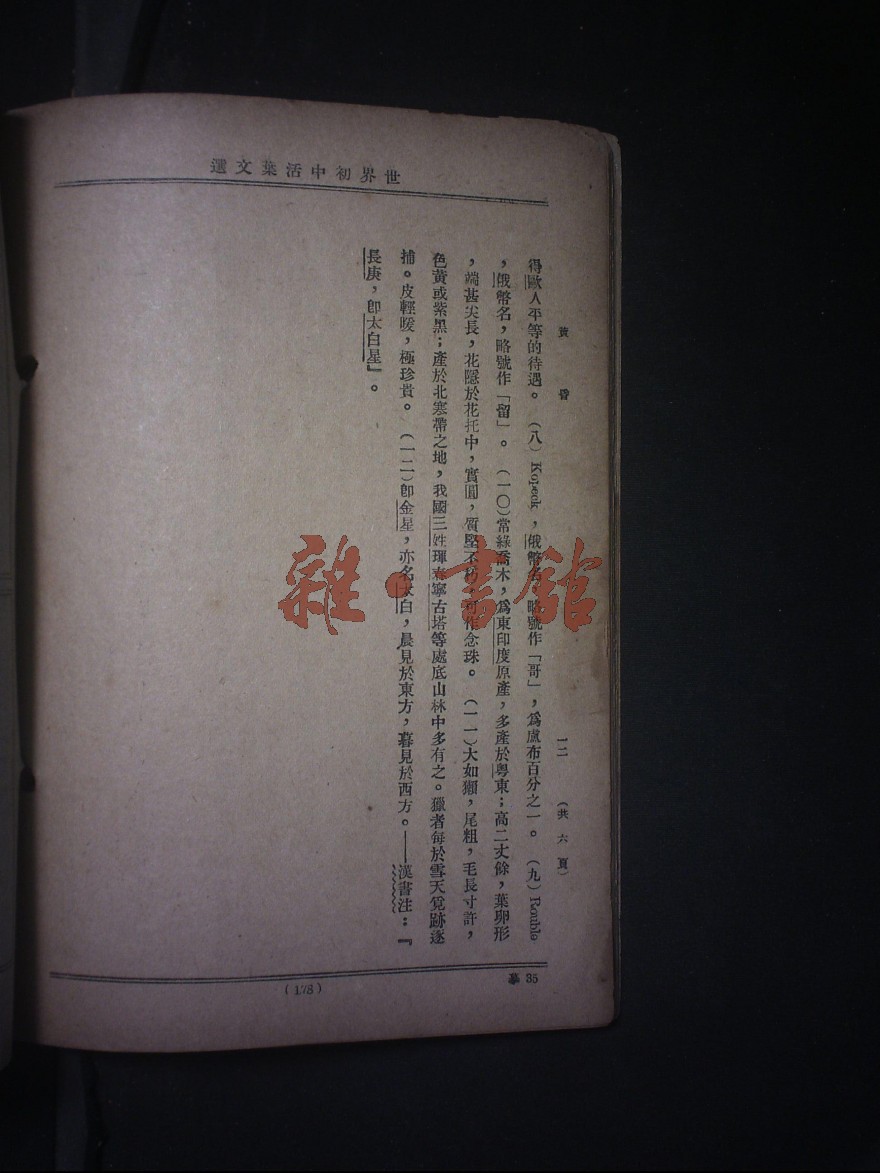 世界初中活葉文選
黃昏 一二 (共六頁)
得歐人平等的待遇。 (八) Kopeck，俄幣名，略號作「哥」，爲盧布百分之一。 (九) Rouble
，俄幣名，略號作「留」。 (一〇)常綠喬木，爲東印度原產，多產於粵東；高二丈餘，葉卵形
，端甚尖長，花隱於花托中，實圓，質堅不朽，可作念珠。 (一一)大如獺，尾粗，毛長寸許，
色黃或紫黑；產於北寒帶之地，我國三姓琿春寧古塔等處底山林中多有之。獵者每於雪天覓跡逐
捕。皮輕暖，極珍貴。 (一二)卽金星，亦名太白，晨見於東方，暮見於西方。——漢書注：『
長庚，卽太白星』。
35
(178)
雜·書館